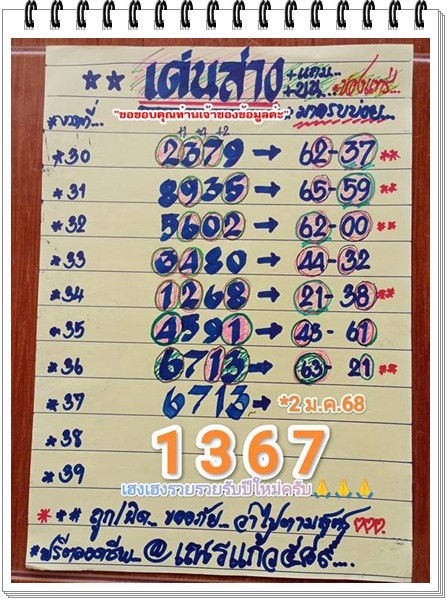 ★★ เด่นล่าง +แถม... +บน... ช่องแทรี่...
"ขอขอบคุณท่านเจ้าของข้อมูลค่ะ" มาครบบ่อย...
*งวดที่... +1 +4 +2
*30 2379 → 62-37 **
*31 8935 → 65-59 **
*32 5602 → 62-00 **
*33 3480 → 44-32
*34 1268 → 21-38 **
*35 4591 → 43-61
*36 6713 → 63-21 **
*37 6713 → *2 ม.ค.68
*38 1367
*39
เฮงเฮงรวยรวยรับปีใหม่ครับ🙏🙏🙏
*** ถูก/ผิด.. ขออภัย.. ว่าไปตามสูตร
*ฟรีตลอดชีพ... @เณรแก้ว๕๘๙....